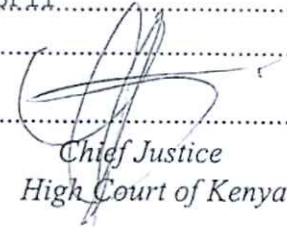 Chief Justice
High Court of Kenya